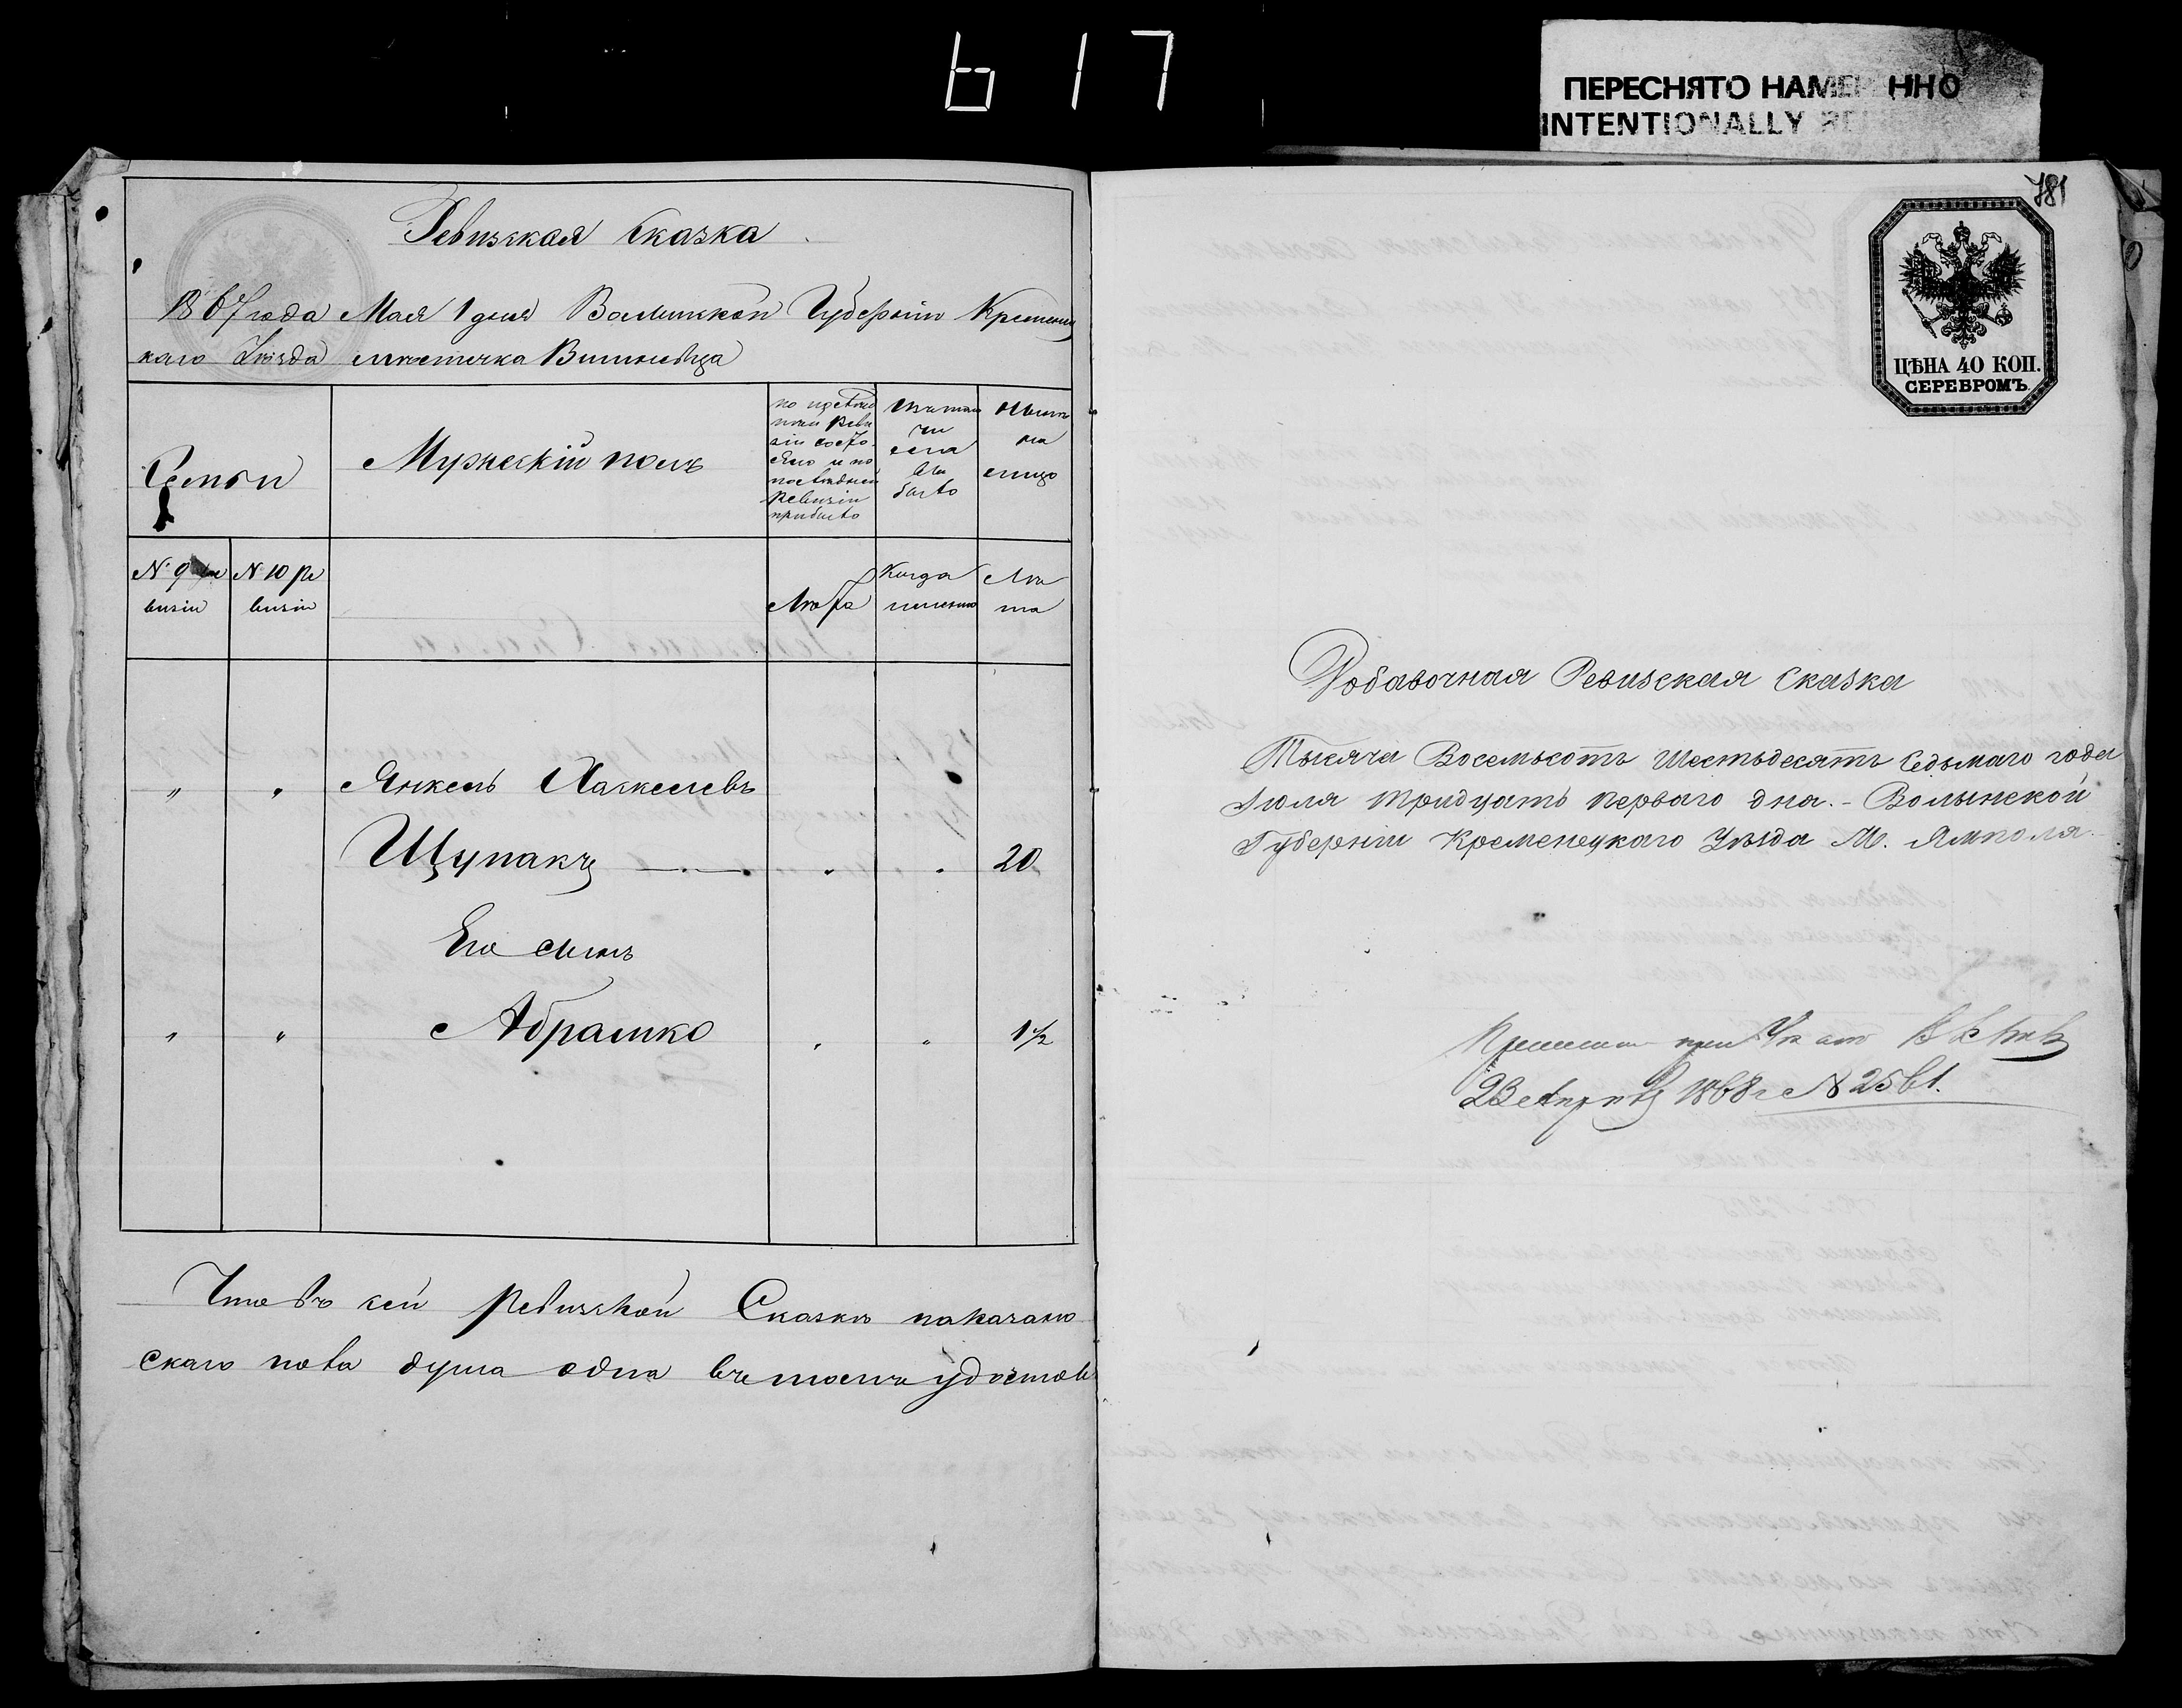 617
ПЕРЕСНЯТО НАМЕ ННО
INTENTIONALLY RE
Ревизская Сказка
1867 года Мая 1 дня Волынской Губерніи Кременец
каго Уѣзда мѣстечка Вишневца
Семьи
Мужескій полъ
по послѣд
ней реви
зіи состо
яло и по
послѣдней
ревизіи
прибыло
изъ того
чи
сла
вы
было
Нынѣ
на
лицо
N 9 ре
визіи
N 10 ре
визіи
Лѣта
Когда
именно
Лѣ
та
" " Янкель Хаскелевъ
Щупакъ 20
Его сынъ
" " Абрамко " " 1½
Что въ сей Ревизской Сказкѣ показано
скаго пола душа одна въ томъ удостов
781
ЦѢНА 40 КОП.
СЕРЕБРОМЪ
Добавочная Ревизская Сказка
Тысяча Восемьсотъ Шестьдесятъ Седьмаго года
Іюля тридцать перваго дня. - Волынской
Губерніи Кременецкаго Уѣзда М. Ямполя.
при
23 Апрѣля 1868 г N 2561.